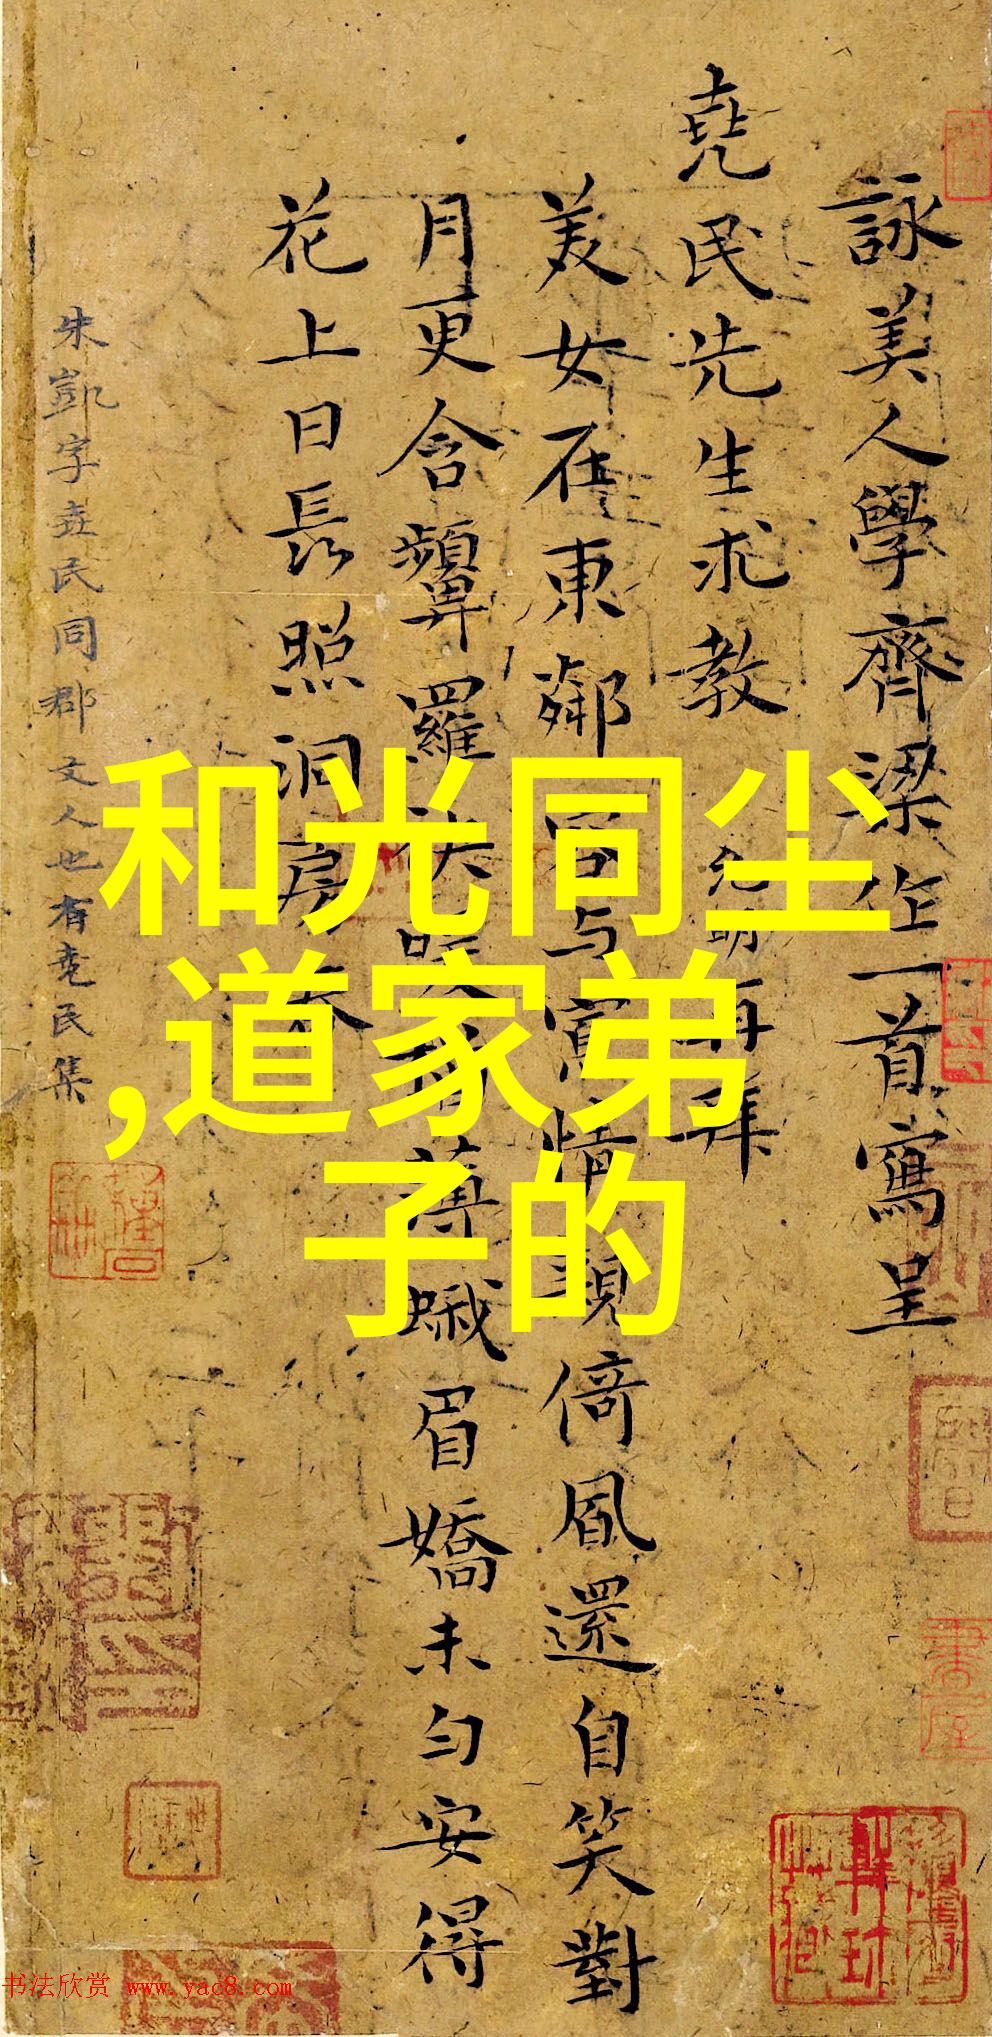 詠美人學齊梁作一首寫呈
堯民先生求教 允明再拜
美女在東鄰 與寫情親倚風還自笑對
月更含顰羅 薄蛾眉嬌未勻安得
花上日長照洞房春
朱凱字堯民同郡文人也有堯民集
和光同尘
,道家弟
子的
书法欣赏 www.yac8.com